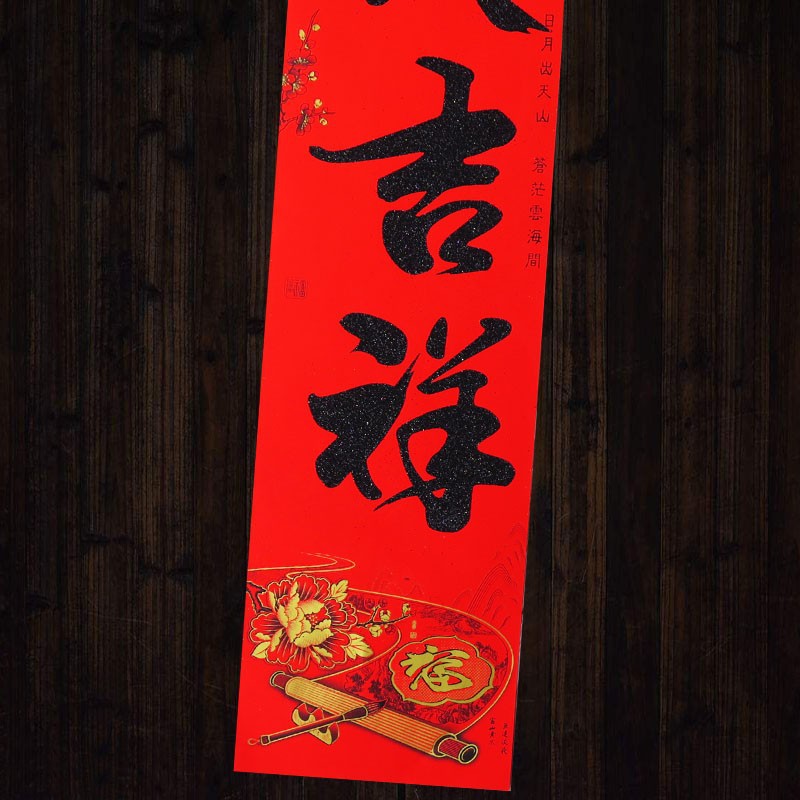 吉祥
日月出天山 蒼茫雲海間
福